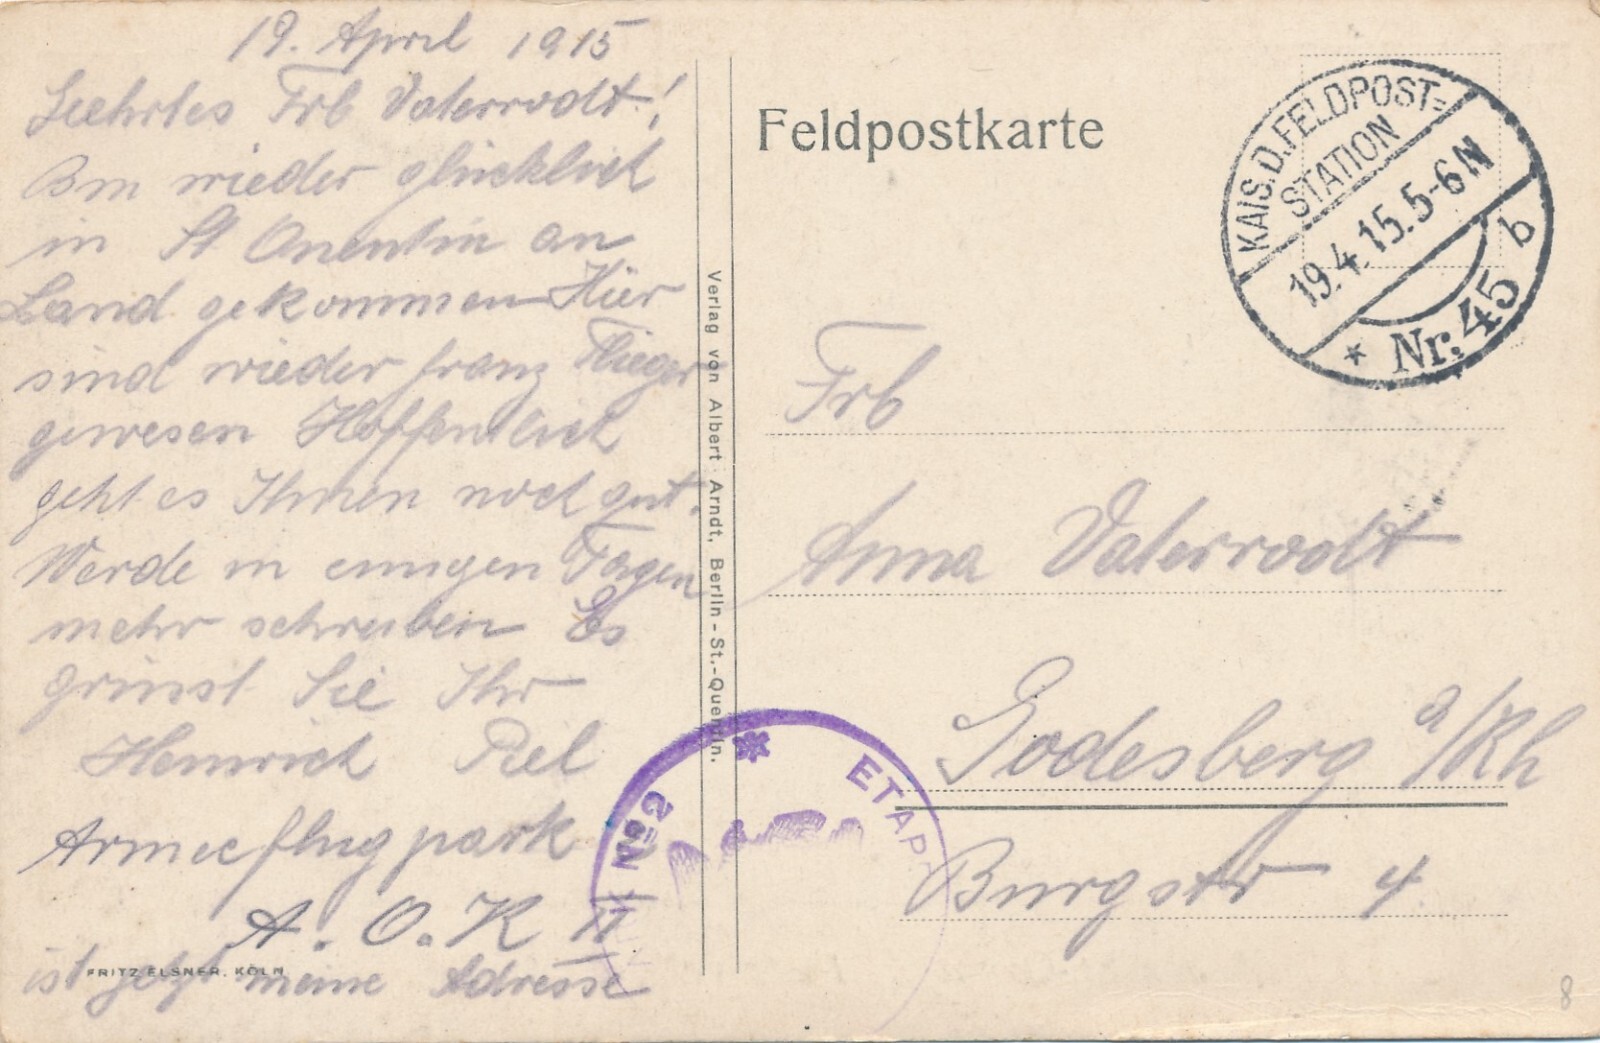 19. April 1915
Geehrtes Frb Vaterrodt!
Bin wieder glücklich
in St Quentin an
Land gekommen Hier
sind wieder franz Flieger
gewesen Hoffentlich
geht es Ihnen noch gut.
Werde in einigen Tagen
mehr schreiben Es
grüsst Sie Ihr
Heinrich Piel
Armeeflugpark
A.O.K II
ist jetzt meine Adresse
FRITZ ELSNER, KÖLN
Verlag von Albert Arndt, Berlin - St.-Quentin.
Feldpostkarte
KAIS. D. FELDPOST=
STATION
19.4.15.5-6N
b
* Nr. 45
Frb
Anna Vaterrodt
Godesberg a/Rh
Burgstr 4.
No 2 * ETAP
8